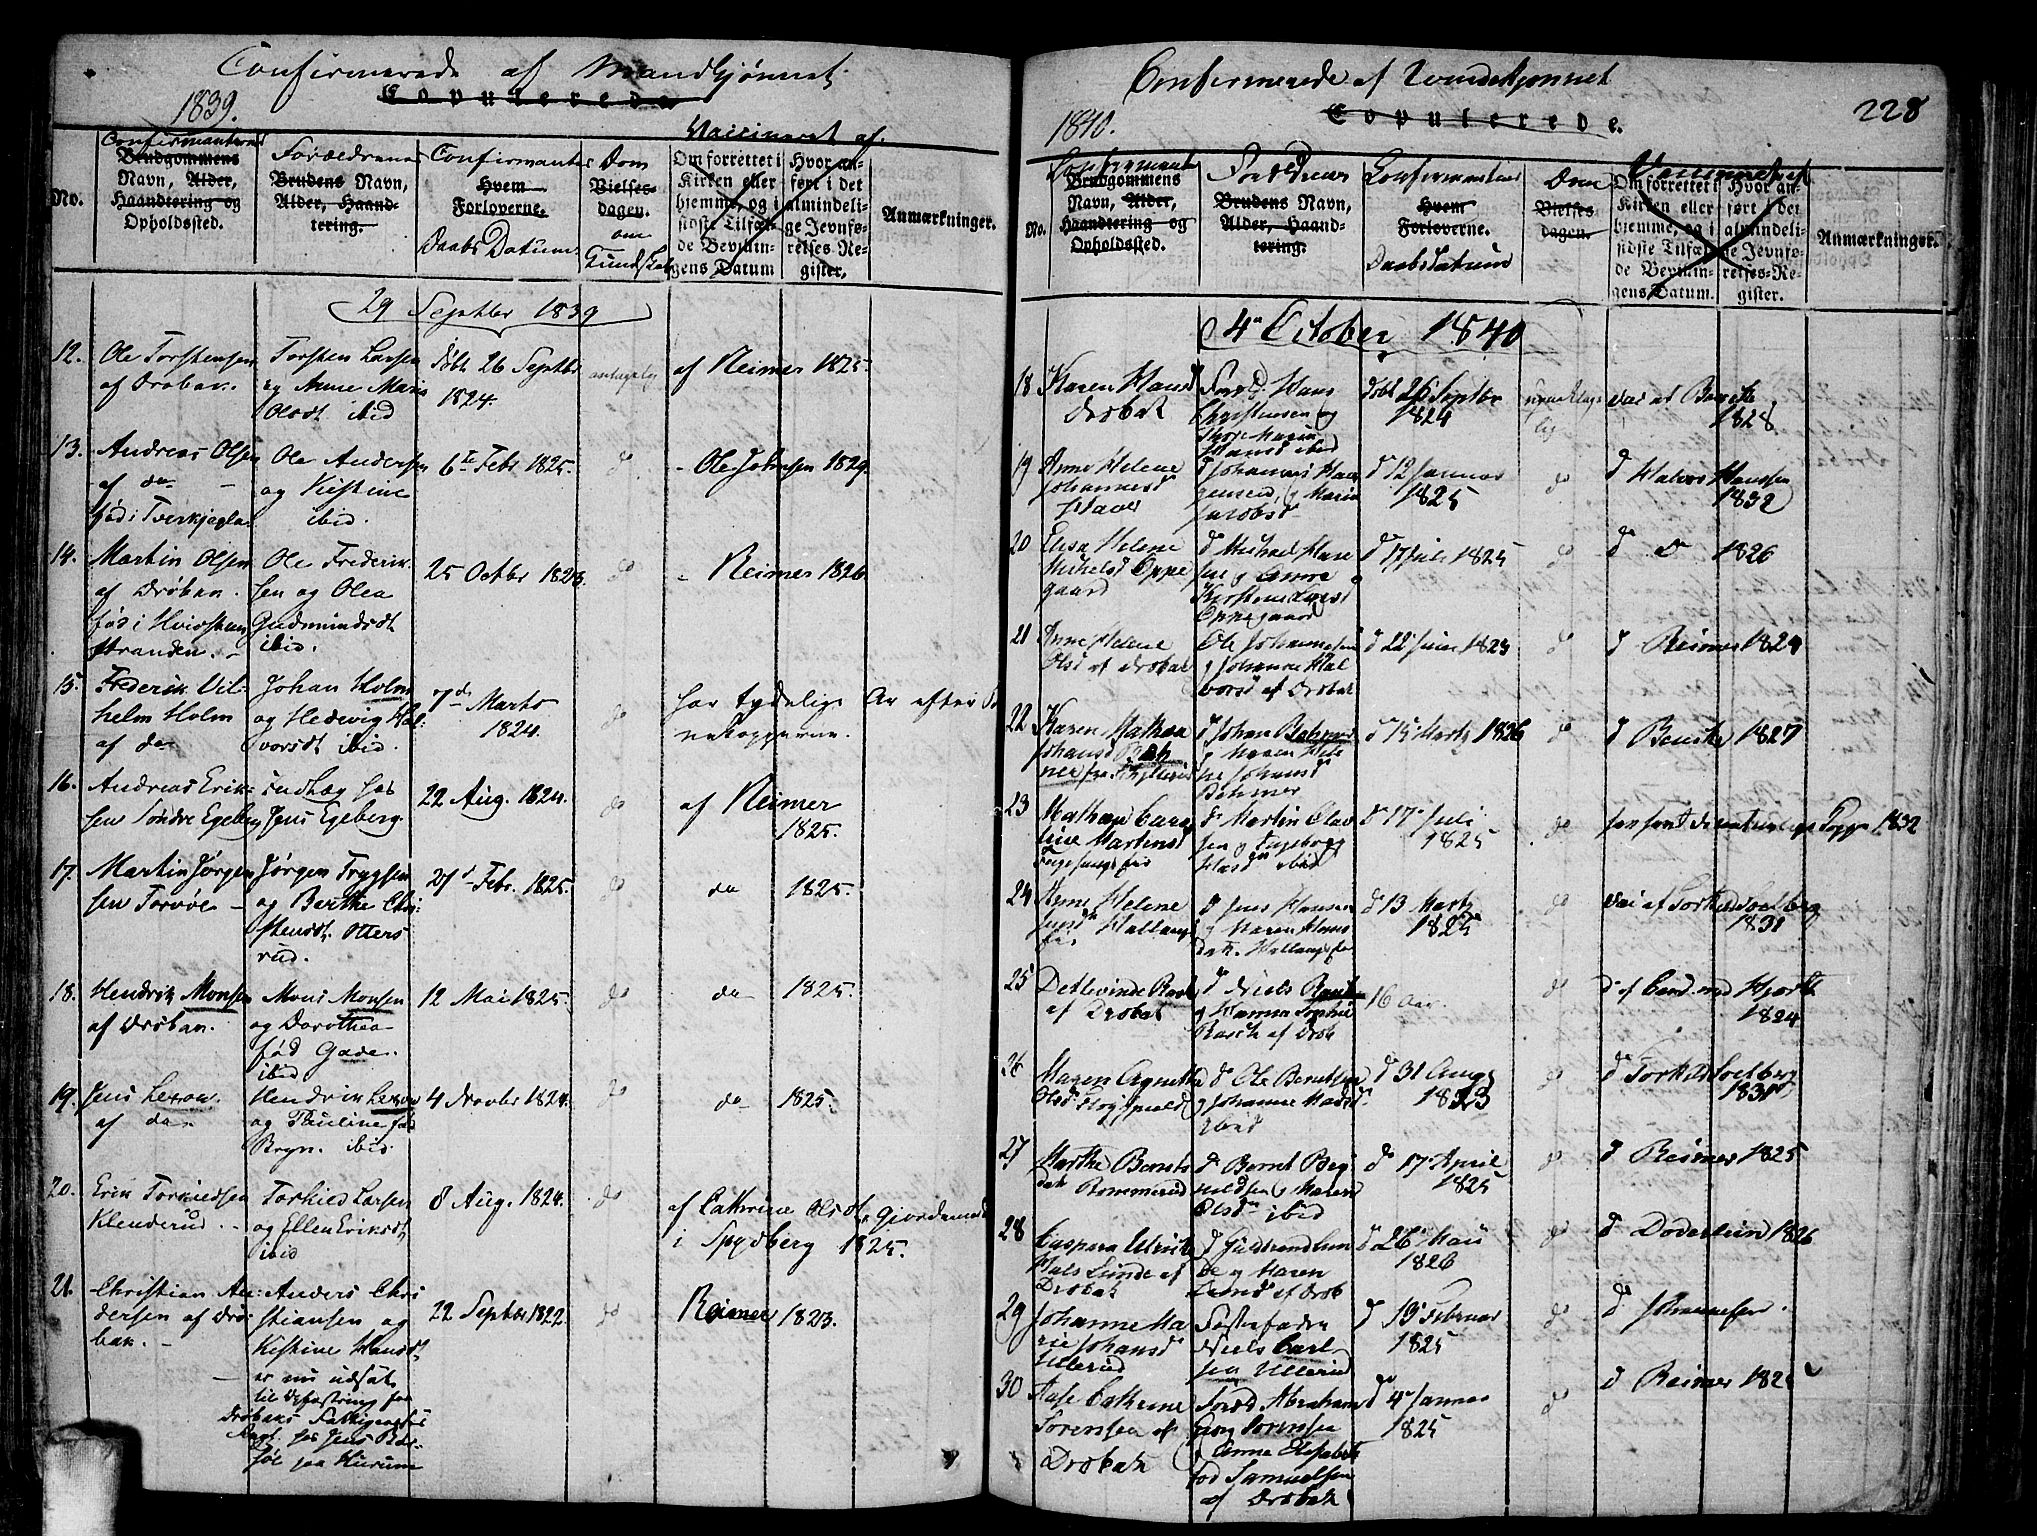 Confirmerede af Mandkjønnet
1839.
Copulerede
Confirmanternes
Brudgommens
Navn, Alder,
Haandtering og
Opholdssted.
No.
Forældrenes
Brudens Navn,
Alder, Haand-
tering.
Confirmantens
Hvem
Forloverne.
Daabs Datum
Dom
Vielses-
dagen.
om
Kundskab
Vaccineret af
Om forrettet i
Kirken eller
hjemme, og i
sidste Tilfæl-
de Bevillin-
gens Datum
Hvor an-
ført i det
almindeli-
ge Jevnfø-
relses-Re-
gister.
Anmærkninger.
29 Septbr 1839
12. Ole Torstensen
af Drøbak.
Torsten Larsen
og Anne Marie
Olsdt ibid
døbt 26 Septbr
1824.
antagelig
af Reimer 1825.
13. Andreas Olsen
af do
fød i Tverkjegla
Ole Andersen
og Kistine
ibid.
6te Febr 1825.
do
- Ole Johnsen 1829.
14. Martin Olsen
af Drøbak.
fød i Hvidsteen
Stranden.
Ole Frederik-
sen og Olea
Gudmundsdt
ibid.
25 Octbr 1823.
do
- Reimer 1826
15. Frederik Vil-
helm Holm
af do
Johan Holm
og Hedevig Hal-
vorsdt ibid.
7de Marts
1824.
do
har tydelige Ar efter B
nekopperne.
16. Andreas Erik-
sen Søndre Egeberg
Indlæg hos
Jens Egeberg.
22 Aug. 1824.
do
af Reimer
1825.
17. Martin Jørgen
sen Torvøe
Jørgen Trygsen
og Berthe Chri-
stensdt. Otters
rud.
27d Febr. 1825.
do
do 1825.
18. Hendrik Monsen
af Drøbak.
Mons Monsen
og Dorothea
fød Gade.
ibid
12 Mai 1825.
do
do 1825.
19. Jens Lexow
af do
Hendrik Lexow
og Pauline fød
Bryn. ibid.
4 Novbr 1824.
do
do 1825.
20. Erik Torkildsen
Klenderud.
Torkild Larsen
og Ellen Eriksdt
ibid
8 Aug. 1824.
do
af Cathrine Olsdt. Giordemod
i Spydberg 1825.
21. Christian An-
dersen af Drø-
bak.
Anders Chri
stiansen og
Kistine Hansdt
er nu udsat
til Opfostring fra
Drøbaks Fattigvæsen
22 Septbr 1822.
do
Reimer 1823.
Confirmerede af Qvindekjønnet
228
1840.
Copulerede.
Confirmantens
Brudgommens
Navn, Alder,
Haandtering og
Opholdssted.
No.
Forældrenes
Brudens Navn,
Alder, Haand-
tering.
Confirmantens
Hvem
Forloverne.
Daabsdatum
Dom
Vielses-
dagen.
Vaccineret af
Om forrettet i
Kirken eller
hjemme, og i
sidste Tilfæl-
de Bevillin-
gens Datum.
Hvor an-
ført i det
almindeli-
ge Jevnfø-
relses-Re-
gister.
Anmærkninger.
4de October 1840
18 Karen Hansd
Drøbak
Foræld. Hans
Christensen og
Thore Marie
Hansd ibid
døbt 26 Septbr
1824
upaaklage
lig
vac af Benike
1828
19 Anne Helene
Johannesd
d Johannes Haa
gensen, og Maria
Jacobsd
d 12 Januar
1825
do
d Halvor Hanssen
1832
20 Elisa Helene
Mikelsd Oppe
gaard
d Michael Hanse
sen og Anne
Kirstine Larsd
Oppegaard
d 17 Juli 1825
do
d d 1826
21 Anne Helene
Olsd af Drøbak
Ole Johannesen
og Johanne Hal
vorsd af Drøbak
d 22 Juni 1823
do
d Reimer 1824
22 Karen Mathea
Johansd Bøh
mer
d Johan Bøhmer
og Maren Hele
ne Johansd
Bøhmer
d 15 Marts 1826
do
d Benike 1827
23 Mathea Caro
line Martinsd
d Martin Olav
sen og Ingeborg
Hansd ibid
d 17 Juli
1825
do
har havt de naturlige Kopper 1832
24 Anne Helene
Jensd Hallang
d Jens Hansen
og Maren Hans
datr. Hallang
d 13 Marts
1825
do
vac af Torkild Soelberg
1831
25 Detlevinde Rasch
af Drøbak
d Niels Rasch
og Hanna Sophie
Rasch af Drøb
16 Aar.
do
d af Cand. med Hjorth
1824
26 Maren Agnethe
Olsd
d Ole Berntsen
og Johanne Madsd
ibid
d 31 Augs
1823
do
d Torkild Soelberg
1831
27 Marthe Bernts
datr Bommerud
d Bernt Beg
og Maren
Olsdr ibid
d 17 April
1825
do
d Reimer 1825
28 Caspara Ulrikke
Hals Lunde af
Drøbak
d Guldbrand Lun
de og Maren
af Drøb
d 26 Mai
1826
do
d Døderlein 1826
29 Johanne Ma
rie Johansd
Ullerud
Fosterfader
Niels Carl
sen Ullerud
d 13 Februar
1825
do
d Johannesen.
30 Aase Cathrine
Sørensen af
Drøbak
Foræld Abraham
Georg Sørensen
og Anna Elisabeth
fød Samuelsen
af Drøbak
d 4 Januar
1825
do
d Reimer 1825